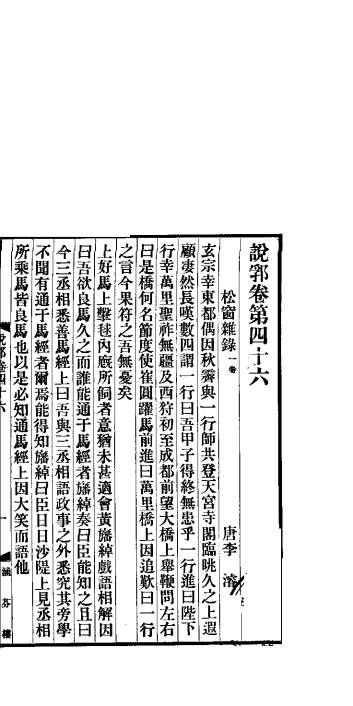 說郛卷第四十六
松窗雜錄一卷
唐李濬
玄宗幸東都偶因秋霽與一行師共登天宮寺閣臨眺久之上遐
顧凄然長嘆數四謂一行曰吾甲子得終無患乎一行進曰陛下
行幸萬里聖祚無疆及西狩初至成都前望大橋上舉鞭問左右
曰是橋何名節度使崔圓躍馬前進曰萬里橋上因追歎曰一行
之言今果符之吾無憂矣
上好馬上擊毬內廐所飼者意猶未甚適會黃旛綽戲語相解因
曰吾欲良馬久之而誰能通于馬經者旛綽奏曰臣能知之且曰
今三丞相悉善馬經上曰吾與三丞相語政事之外悉究其旁學
不聞有通于馬經者爾焉能得知旛綽曰臣日日沙隄上見丞相
所乘馬皆良馬也以是必知通馬經上因大笑而語他
說郛卷四十六
一
涵芬樓